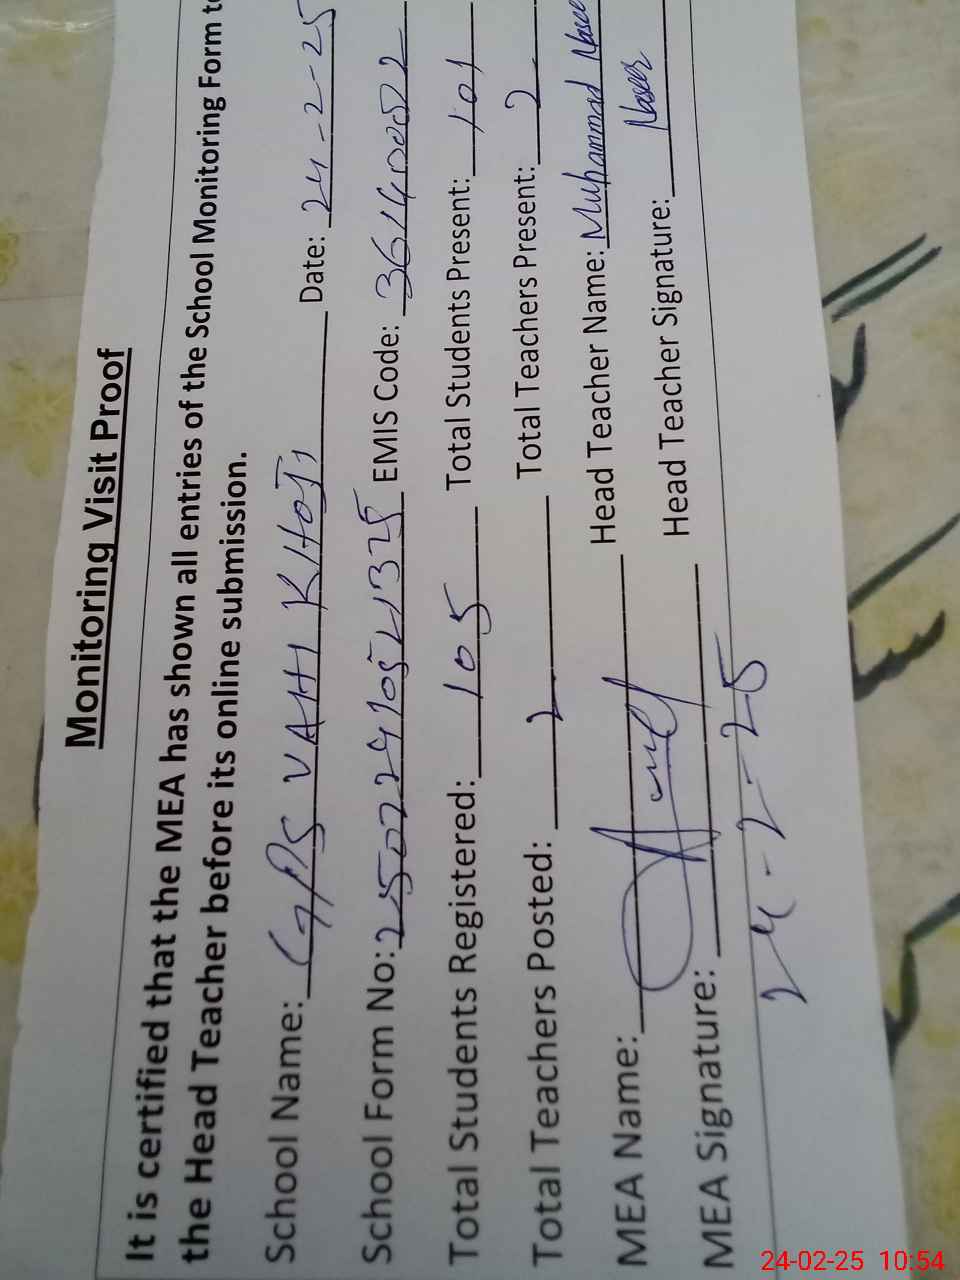 Monitoring Visit Proof
It is certified that the MEA has shown all entries of the School Monitoring Form to
the Head Teacher before its online submission.
School Name: GPS VAHI KHOJI Date: 24-2-25
School Form No: EMIS Code:
Total Students Registered: 105 Total Students Present: 101
Total Teachers Posted: 2 Total Teachers Present: 2
MEA Name: Head Teacher Name: Muhammad Naseer
MEA Signature: Head Teacher Signature: Naseer
24-2-25
24-02-25 10:54